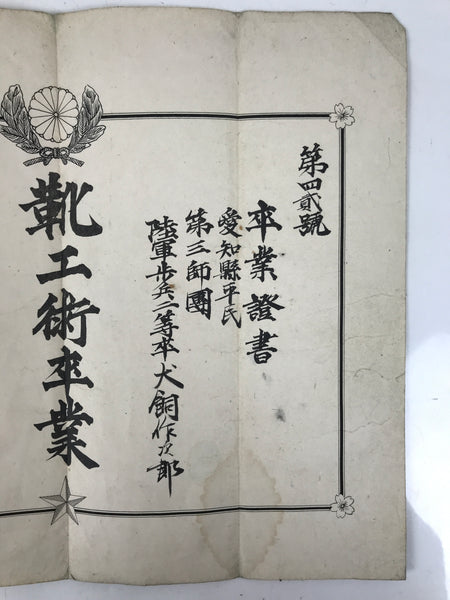 第四貳號
卒業證書
愛知縣平民
第三師團
陸軍歩兵二等卒犬飼作次郎
靴工術卒業